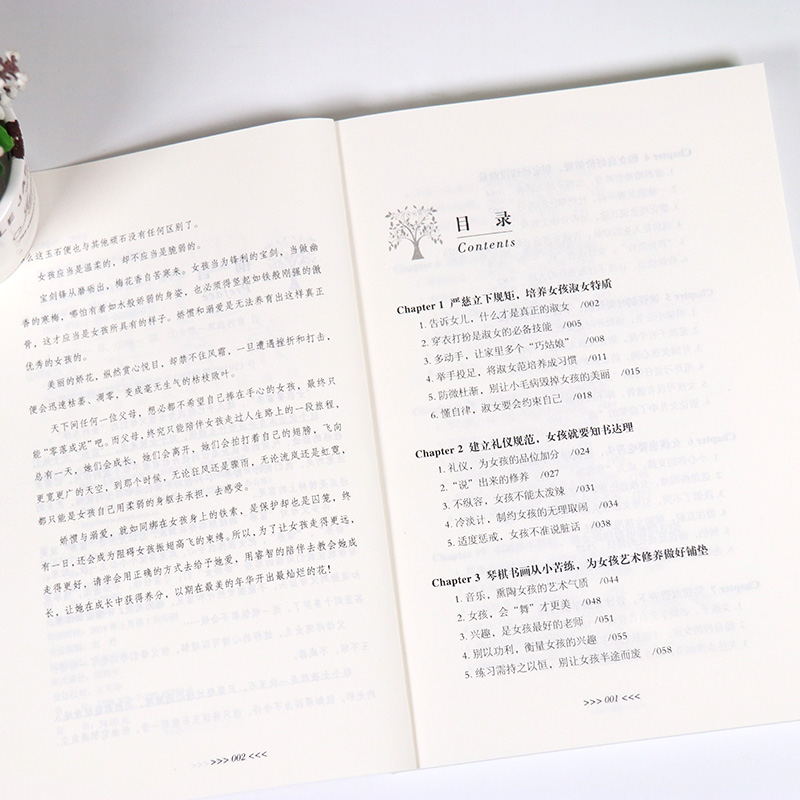 么这玉石便也与其他顽石没有任何区别了。
女孩应当是温柔的，却不应当是脆弱的。
宝剑锋从磨砺出，梅花香自苦寒来。女孩当为锋利的宝剑，当做幽
香的寒梅，哪怕有着如水般娇弱的身姿，也必须得竖起如铁般刚强的傲
骨，这才应当是女孩所具有的样子。娇惯和溺爱是无法养育出这样真正
优秀的女孩的。
美丽的娇花，纵然赏心悦目，却禁不住风霜，一旦遭遇挫折和打击，
便会迅速枯萎、凋零，变成毫无生气的枯枝败叶。
天下间任何一位父母，想必都不希望自己捧在手心的女孩，最终只
能“零落成泥”吧。而父母，终究只能陪伴女孩走过人生路上的一段旅程，
总有一天，她们会成长，她们会离开，她们会拍打着自己的翅膀，飞向
更宽更广的天空，到那个时候，无论狂风还是骤雨，无论流岚还是虹霓，
都只能是女孩自己用柔弱的身躯去承担，去感受。
娇惯与溺爱，就如同绑在女孩身上的铁索，是保护却也是囚笼，终
有一日，还会成为阻碍女孩振翅高飞的束缚。所以，为了让女孩走得更远，
走得更好，请学会用正确的方式去给予她爱，用睿智的陪伴去教会她成
长，让她在成长中获得养分，以期在最美的年华开出最灿烂的花！
>>> 002 <<<
目 录
Contents
Chapter 1 严慈立下规矩，培养女孩淑女特质
1. 告诉女儿，什么才是真正的淑女 /002
2. 穿衣打扮是淑女的必备技能 /005
3. 多动手，让家里多个“巧姑娘” /008
4. 举手投足，将淑女范培养成习惯 /011
5. 防微杜渐，别让小毛病毁掉女孩的美丽 /015
6. 懂自律，淑女要会约束自己 /018
Chapter 2 建立礼仪规范，女孩就要知书达理
1. 礼仪，为女孩的品位加分 /024
2. “说”出来的修养 /027
3. 不纵容，女孩不能太泼辣 /031
4. 冷淡计，制约女孩的无理取闹 /034
5. 适度惩戒，女孩不准说脏话 /038
Chapter 3 琴棋书画从小苦练，为女孩艺术修养做好铺垫
1. 音乐，熏陶女孩的艺术气质 /044
2. 女孩，会“舞”才更美 /048
3. 兴趣，是女孩最好的老师 /051
4. 别以功利，衡量女孩的兴趣 /055
5. 练习需持之以恒，别让女孩半途而废 /058
>>> 001 <<<